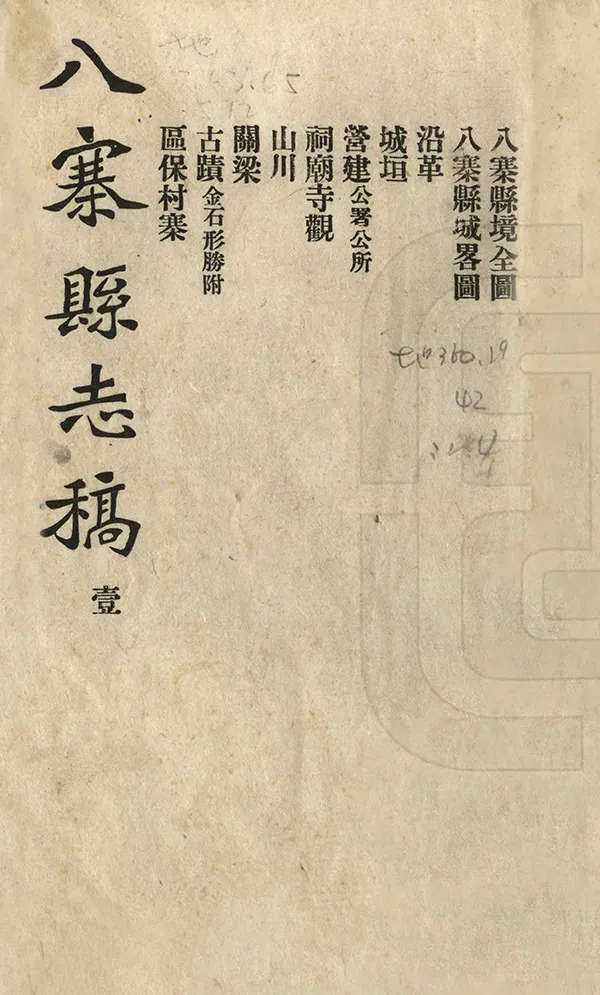 八寨縣境全圖
八寨縣城畧圖
沿革
城垣
營建公署公所
祠廟寺觀
山川
關梁
古蹟金石形勝附
區保村寨
八寨縣志稿
壹
地360.19
42